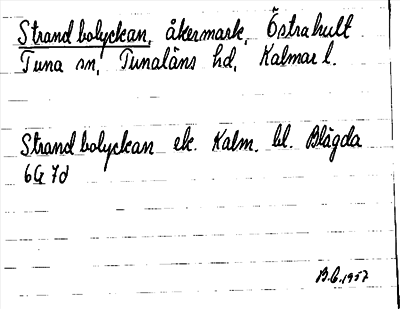 Strandbolyckan, åkermark, Östrahult
Tuna sn, Tunaläns hd, Kalmar l.
Strandbolyckan ek. Kalm. bl. Blägda
6G 7d
B.C. 1957